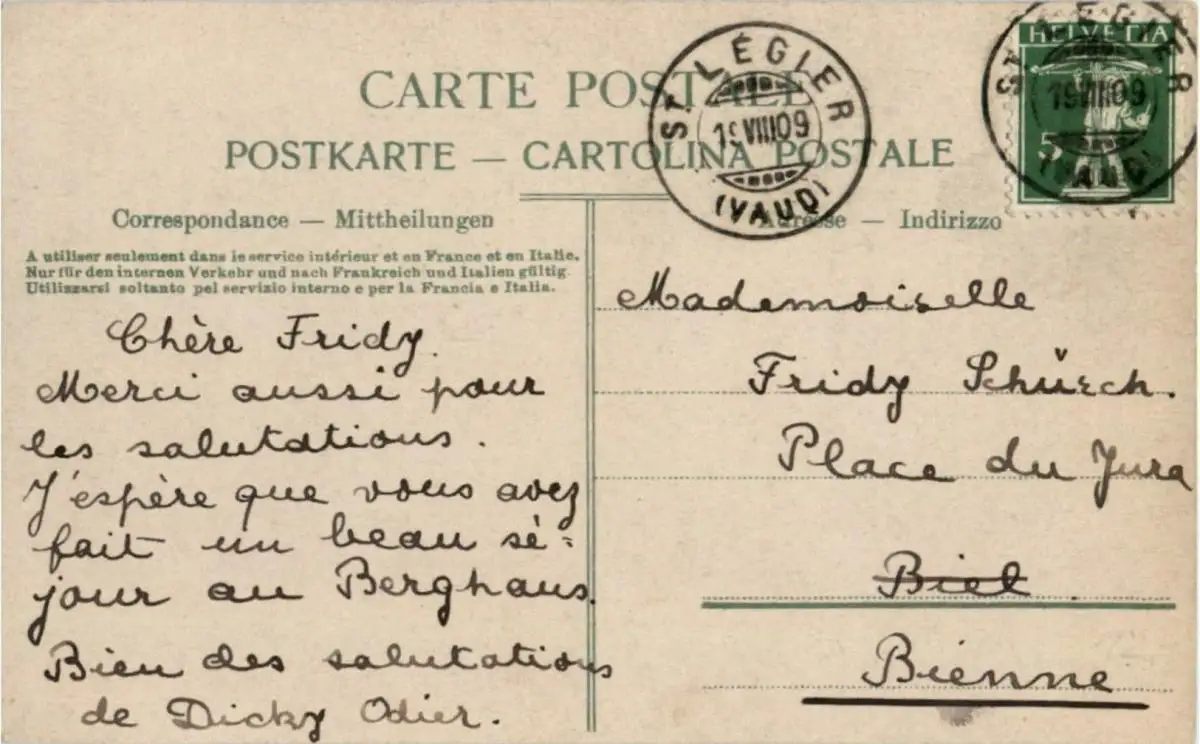 CARTE POSTALE
POSTKARTE — CARTOLINA POSTALE
ST LÉGIER
19 VIII 09
(VAUD)
ST LÉGIER
19 VIII 09
(VAUD)
HELVETIA
5
Correspondance — Mittheilungen
A utiliser seulement dans le service intérieur et en France et en Italie.
Nur für den internen Verkehr und nach Frankreich und Italien gültig.
Utilizzarsi soltanto pel servizio interno e per la Francia e Italia.
Chère Fridy.
Merci aussi pour
les salutations.
J'espère que vous avez
fait un beau sé=
jour au Berghaus.
Bien des salutations
de Dicky Odier.
Adresse — Indirizzo
Mademoiselle
Fridy Schürch.
Place du Jura
Biel
Bienne